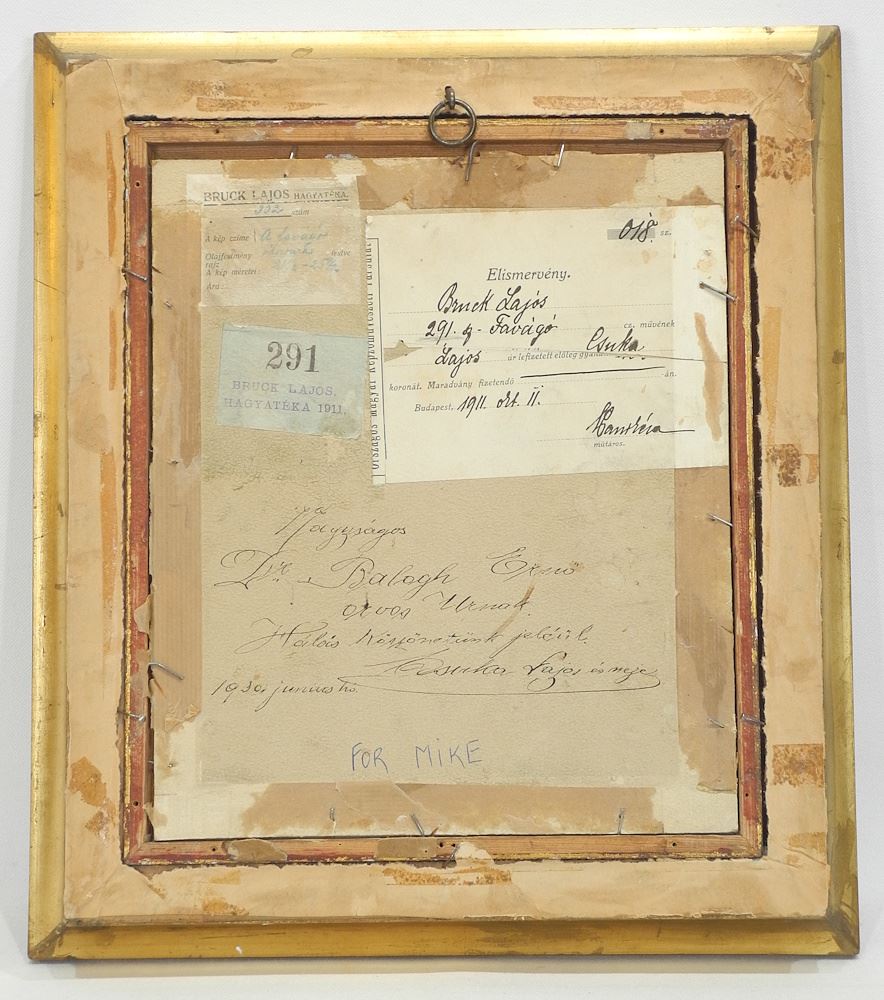 BRUCK LAJOS HAGYATÉKA.
332 szám
A kép czime
Olajfestmény
rajz
A kép méretei:
Ára:
291
BRUCK LAJOS.
HAGYATÉKA 1911.
Országos Magyar Képzőművészeti Társulat
018. sz.
Elismervény.
Bruck Lajos
291. - Favágó cz. művének
Csuka
Lajos úr lefizetett előleg gyanánt
koronát. Maradvány fizetendő -án.
Budapest, 1911. okt. 11.
műtáros.
Nagyságos
Dr. Balogh Ernő
orvos Urnak
Hálás köszönetünk jeléül.
Csuka Lajos és neje
1930. junius hó.
FOR MIKE